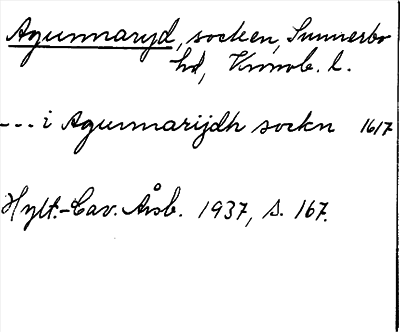 Agunnaryd, socken, Sunnerbo
hd, Kronob. l.
--- i Agunnarijdh sockn 1617
Hylt.-Cav. Årsb. 1937, s. 167.